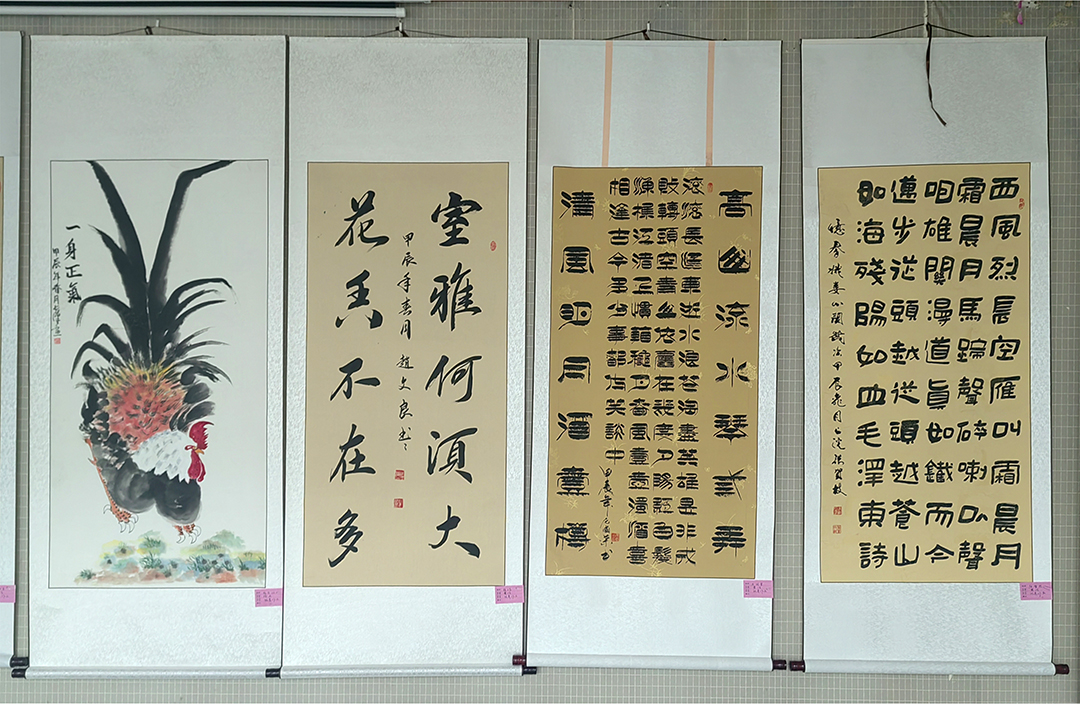 一身正氣
甲辰年春月
室雅何須大
花香不在多
甲辰年春月 趙文良書
高山流水琴弎弄
滾滾長江東逝水浪花淘盡英雄是非成
敗轉頭空青山依舊在幾度夕陽紅白髮
漁樵江渚上慣看秋月春風一壺濁酒喜
相逢古今多少事都付笑談中
清風明月酒壹樽
西風烈長空雁叫霜晨月
霜晨月馬蹄聲碎喇叭聲
咽雄關漫道真如鐵而今
邁步從頭越從頭越蒼山
如海殘陽如血毛澤東詩
憶秦娥婁山關